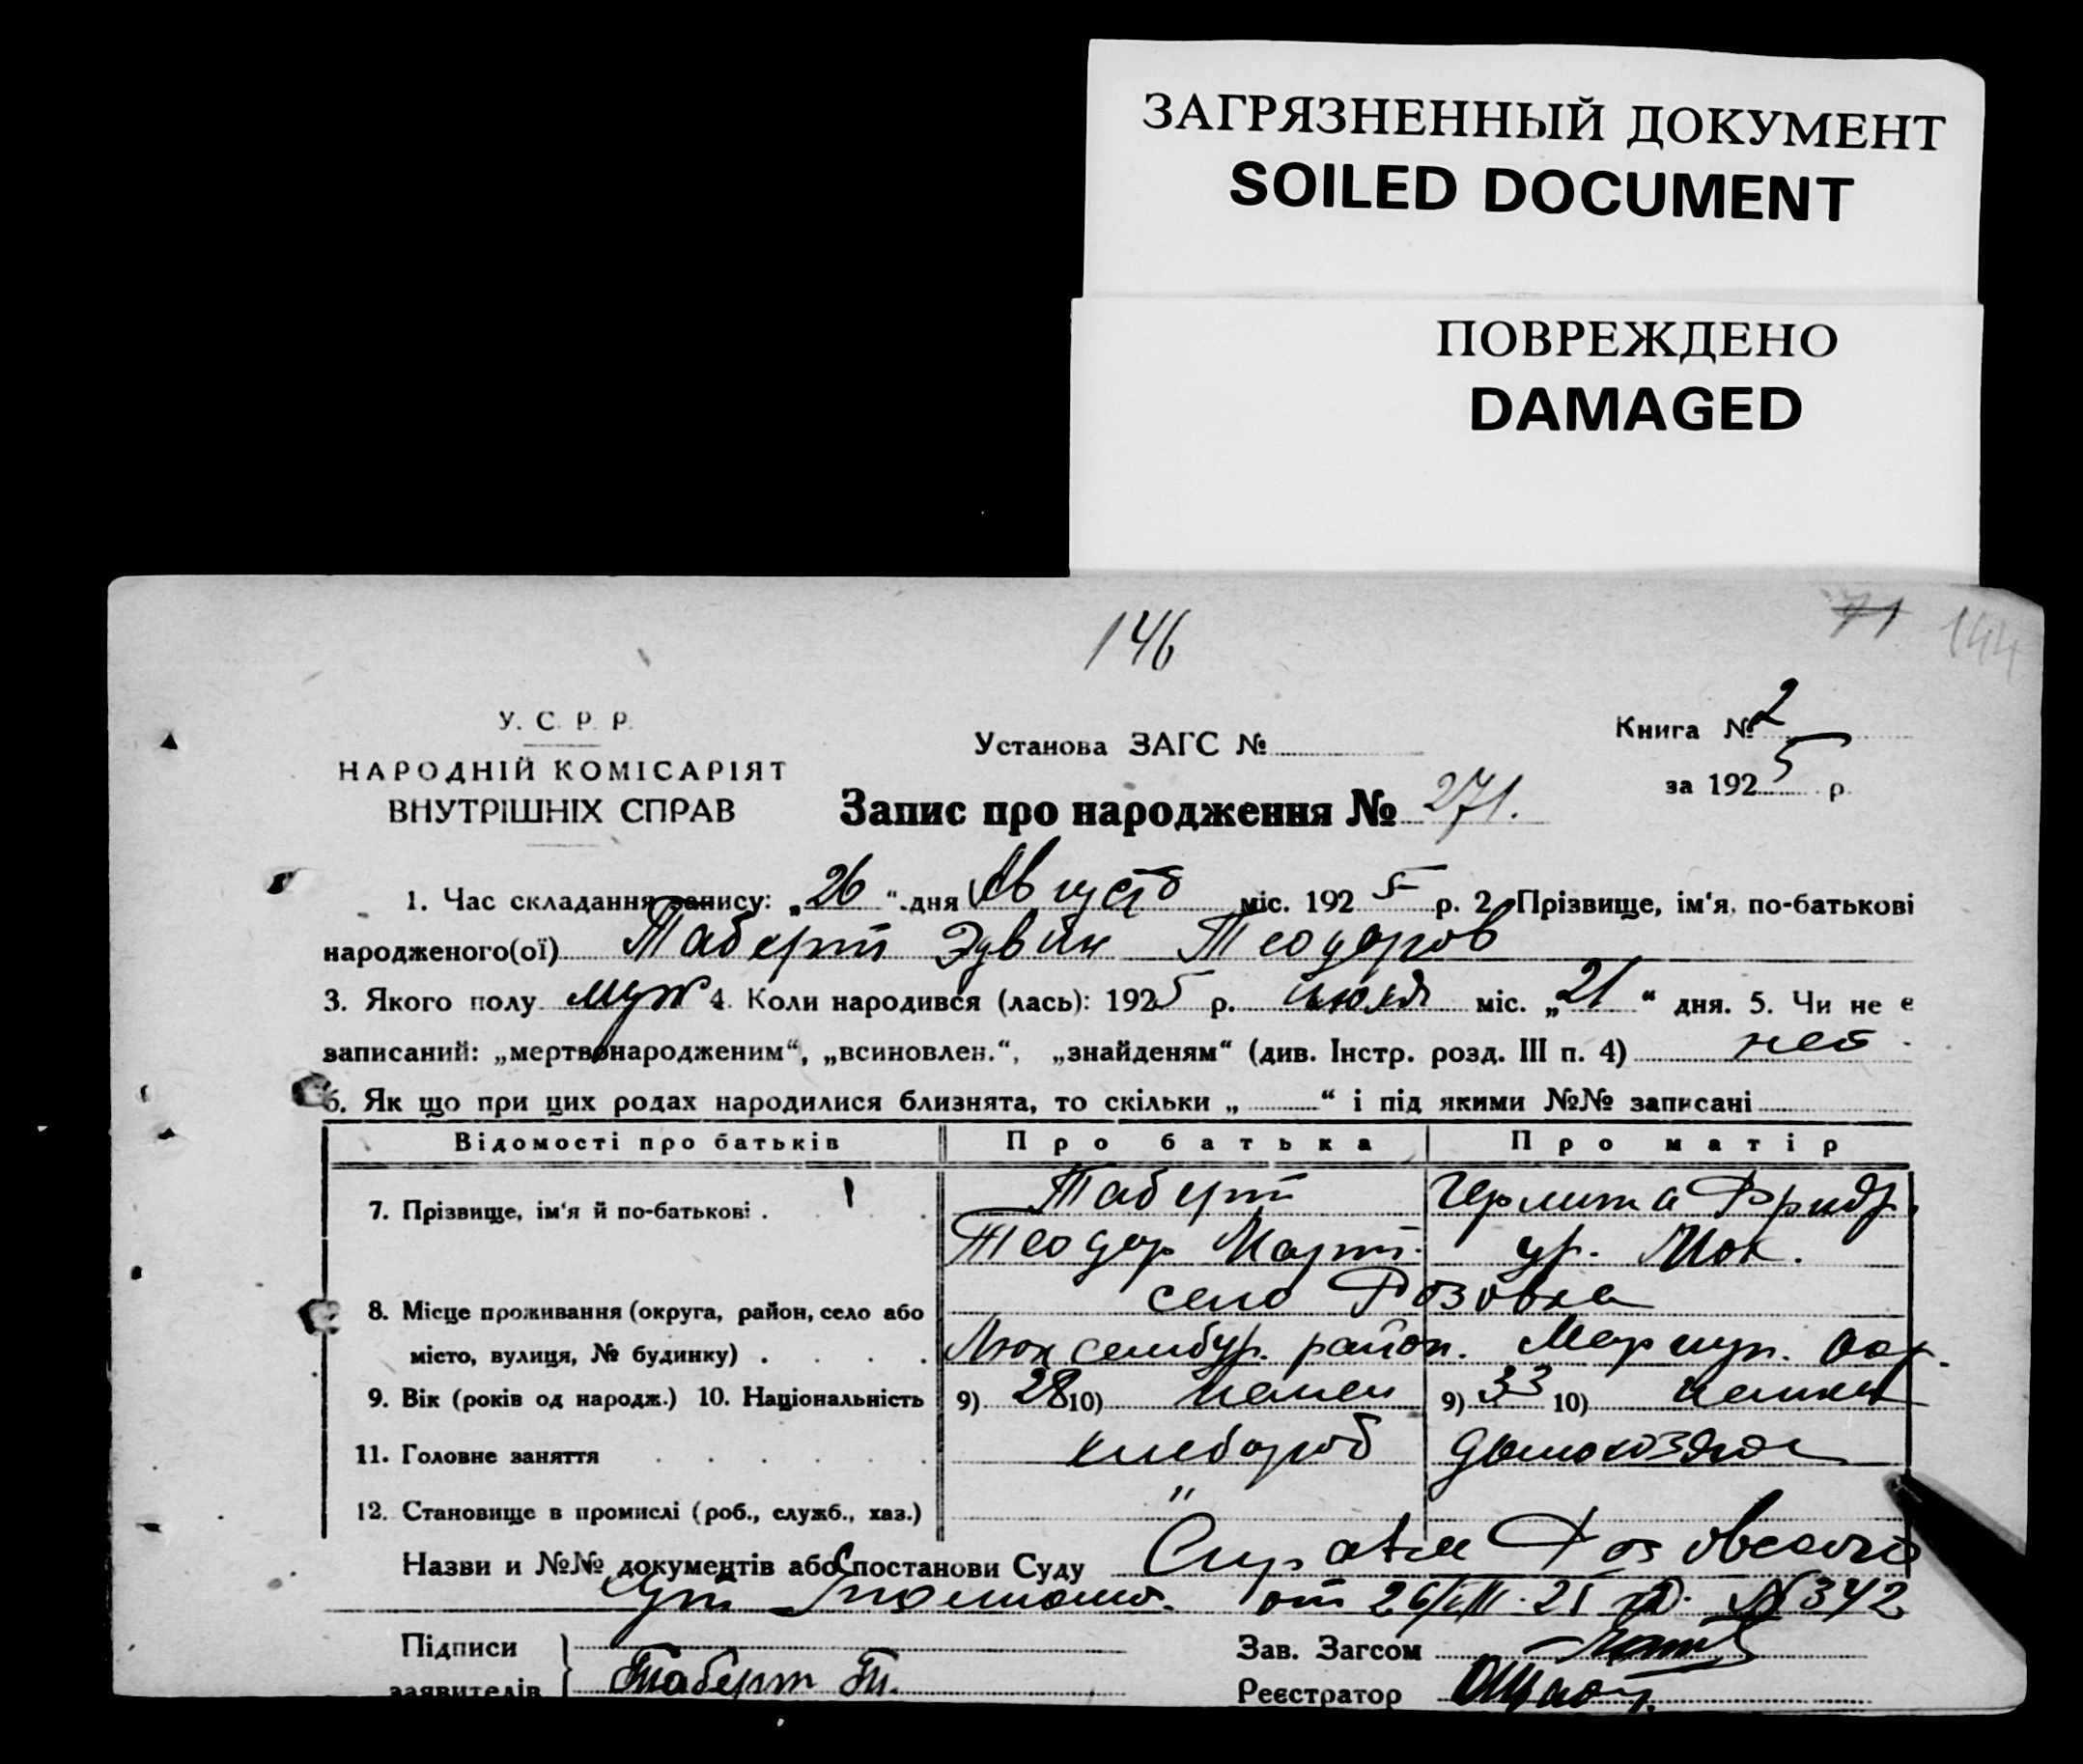 ЗАГРЯЗНЕННЫЙ ДОКУМЕНТ
SOILED DOCUMENT
ПОВРЕЖДЕНО
DAMAGED
146
71 144
У. С. Р. Р.
НАРОДНІЙ КОМІСАРІЯТ
ВНУТРІШНІХ СПРАВ
Установа ЗАГС №
Книга № 2
за 1925 р.
Запис про народження № 271.
1. Час складання запису: „26“ дня Августа міс. 1925 р. 2. Прізвище, ім'я, по-батькові
народженого(ої) Таберт Эдвин Теодоров
3. Якого полу муж 4. Коли народився (лась): 1925 р. июля міс. „21“ дня. 5. Чи не є
записаний: „мертвонародженим“, „всиновлен.“, „знайденям“ (див. Інстр. розд. III п. 4) нет
6. Як що при цих родах народилися близнята, то скільки „ “ і під якими №№ записані
Відомості про батьків Про батька Про матір
7. Прізвище, ім'я й по-батькові . Таберт Фридр.
Теодор Март. ур.
село Розовка
8. Місце проживання (округа, район, село або
місто, вулиця, № будинку) . Люксембур. район. Мариуп. Окр.
9. Вік (років од народж.) 10. Національність 9) 28 10) немец 9) 33 10) немка
11. Головне заняття хлебороб домохозяйка
12. Становище в промислі (роб., служб., хаз.) "
Назви и №№ документів або постанови Суду Справка Розовского
от 26/VIII-25 г. № 342
Підписи
заявителів Таберт Т.
Зав. Загсом
Реєстратор